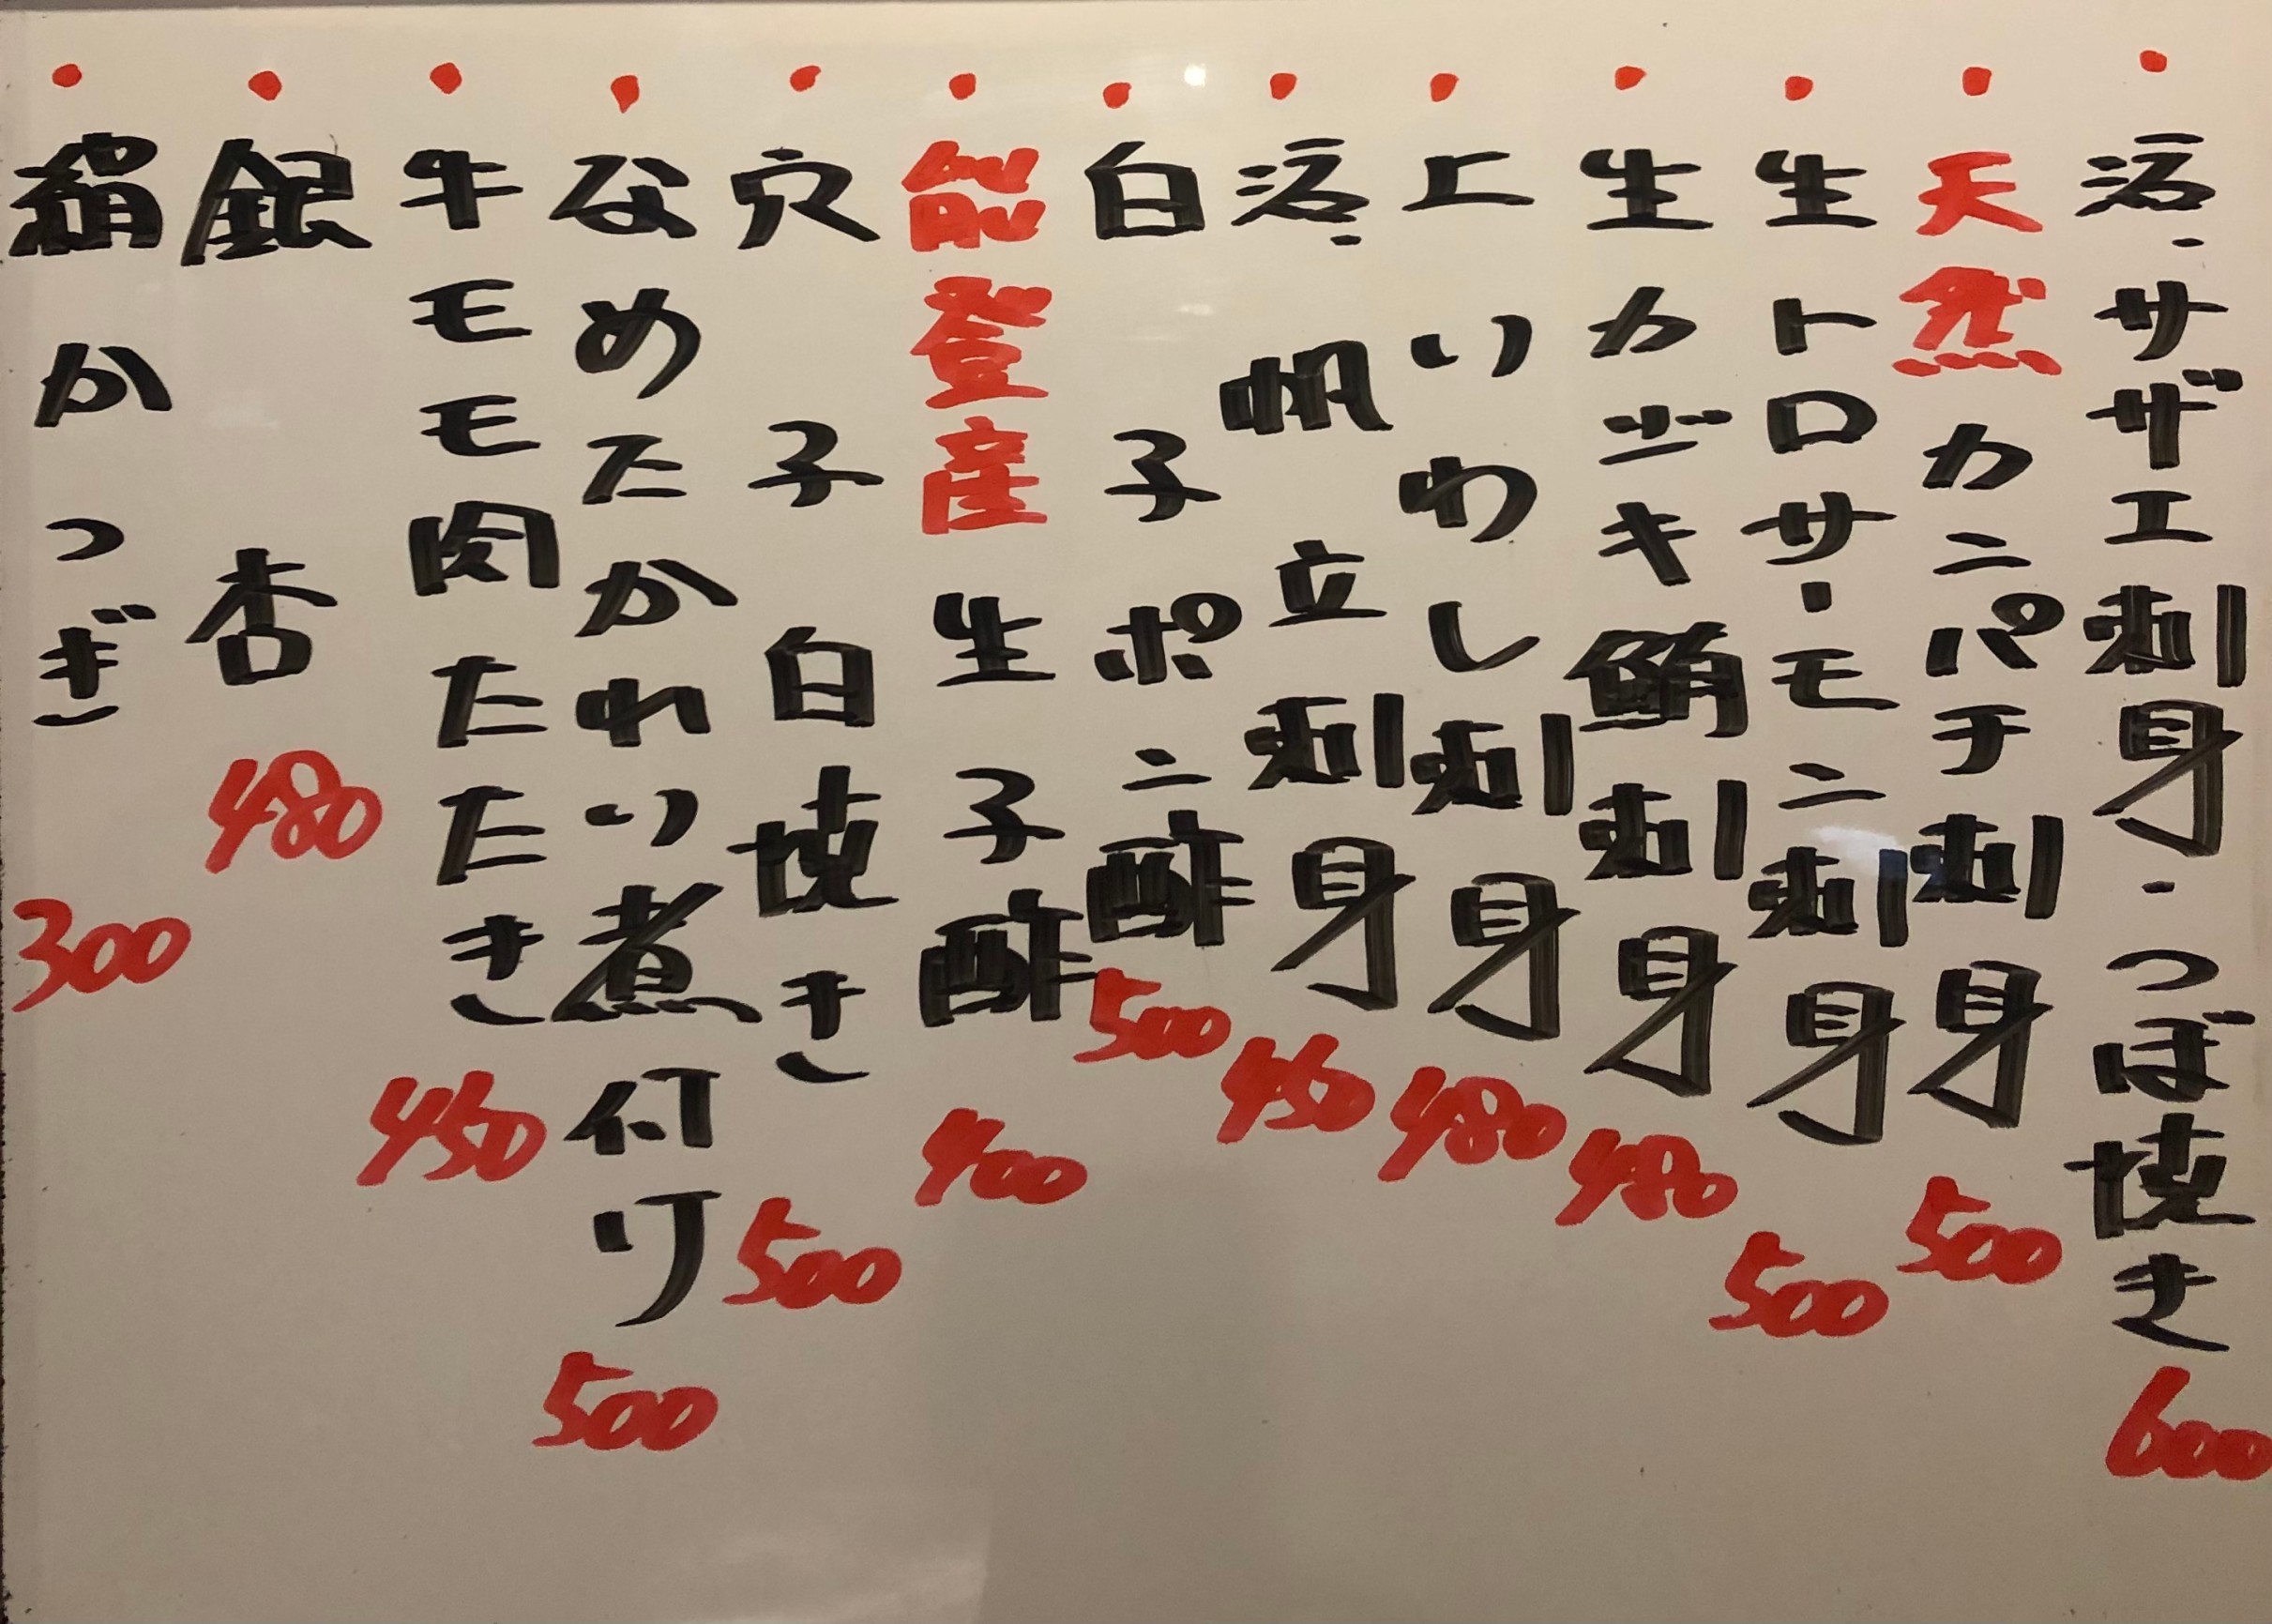 ・活・サザエ刺身・つぼ焼き 600
・天然カンパチ刺身 500
・生トロサーモン刺身 500
・生カジキ鮪刺身 480
・上いわし刺身 480
・活・帆立刺身 450
・白子ポン酢 500
・能登産生子酢 400
・穴子白焼き 500
・なめたかれい煮付け 500
・牛モモ肉たたき 450
・銀杏 480
・絹かつぎ 300